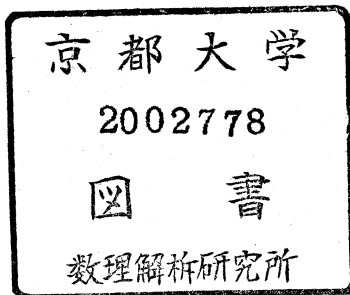 京都大学
2002778
図書
数理解析研究所